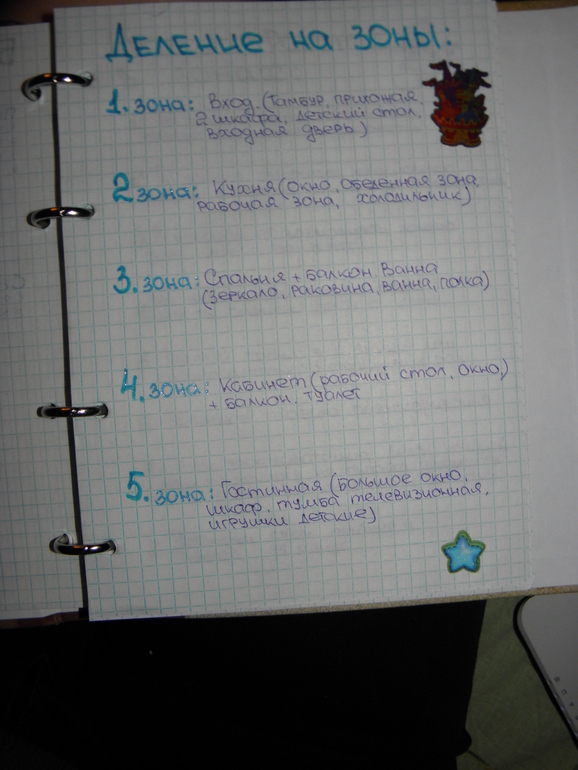 Деление на зоны:
1. зона: Вход. (Тамбур, прихожая,
2 шкафа, детский стол,
входная дверь)
2 зона: Кухня (окно, обеденная зона
рабочая зона, холодильник)
3. зона: Спальня + балкон. Ванна
(зеркало, раковина, ванна, полка)
4. зона: Кабинет (рабочий стол, окно,)
+ балкон, туалет
5. зона: Гостинная (большое окно,
шкаф, тумба телевизионная,
игрушки детские)